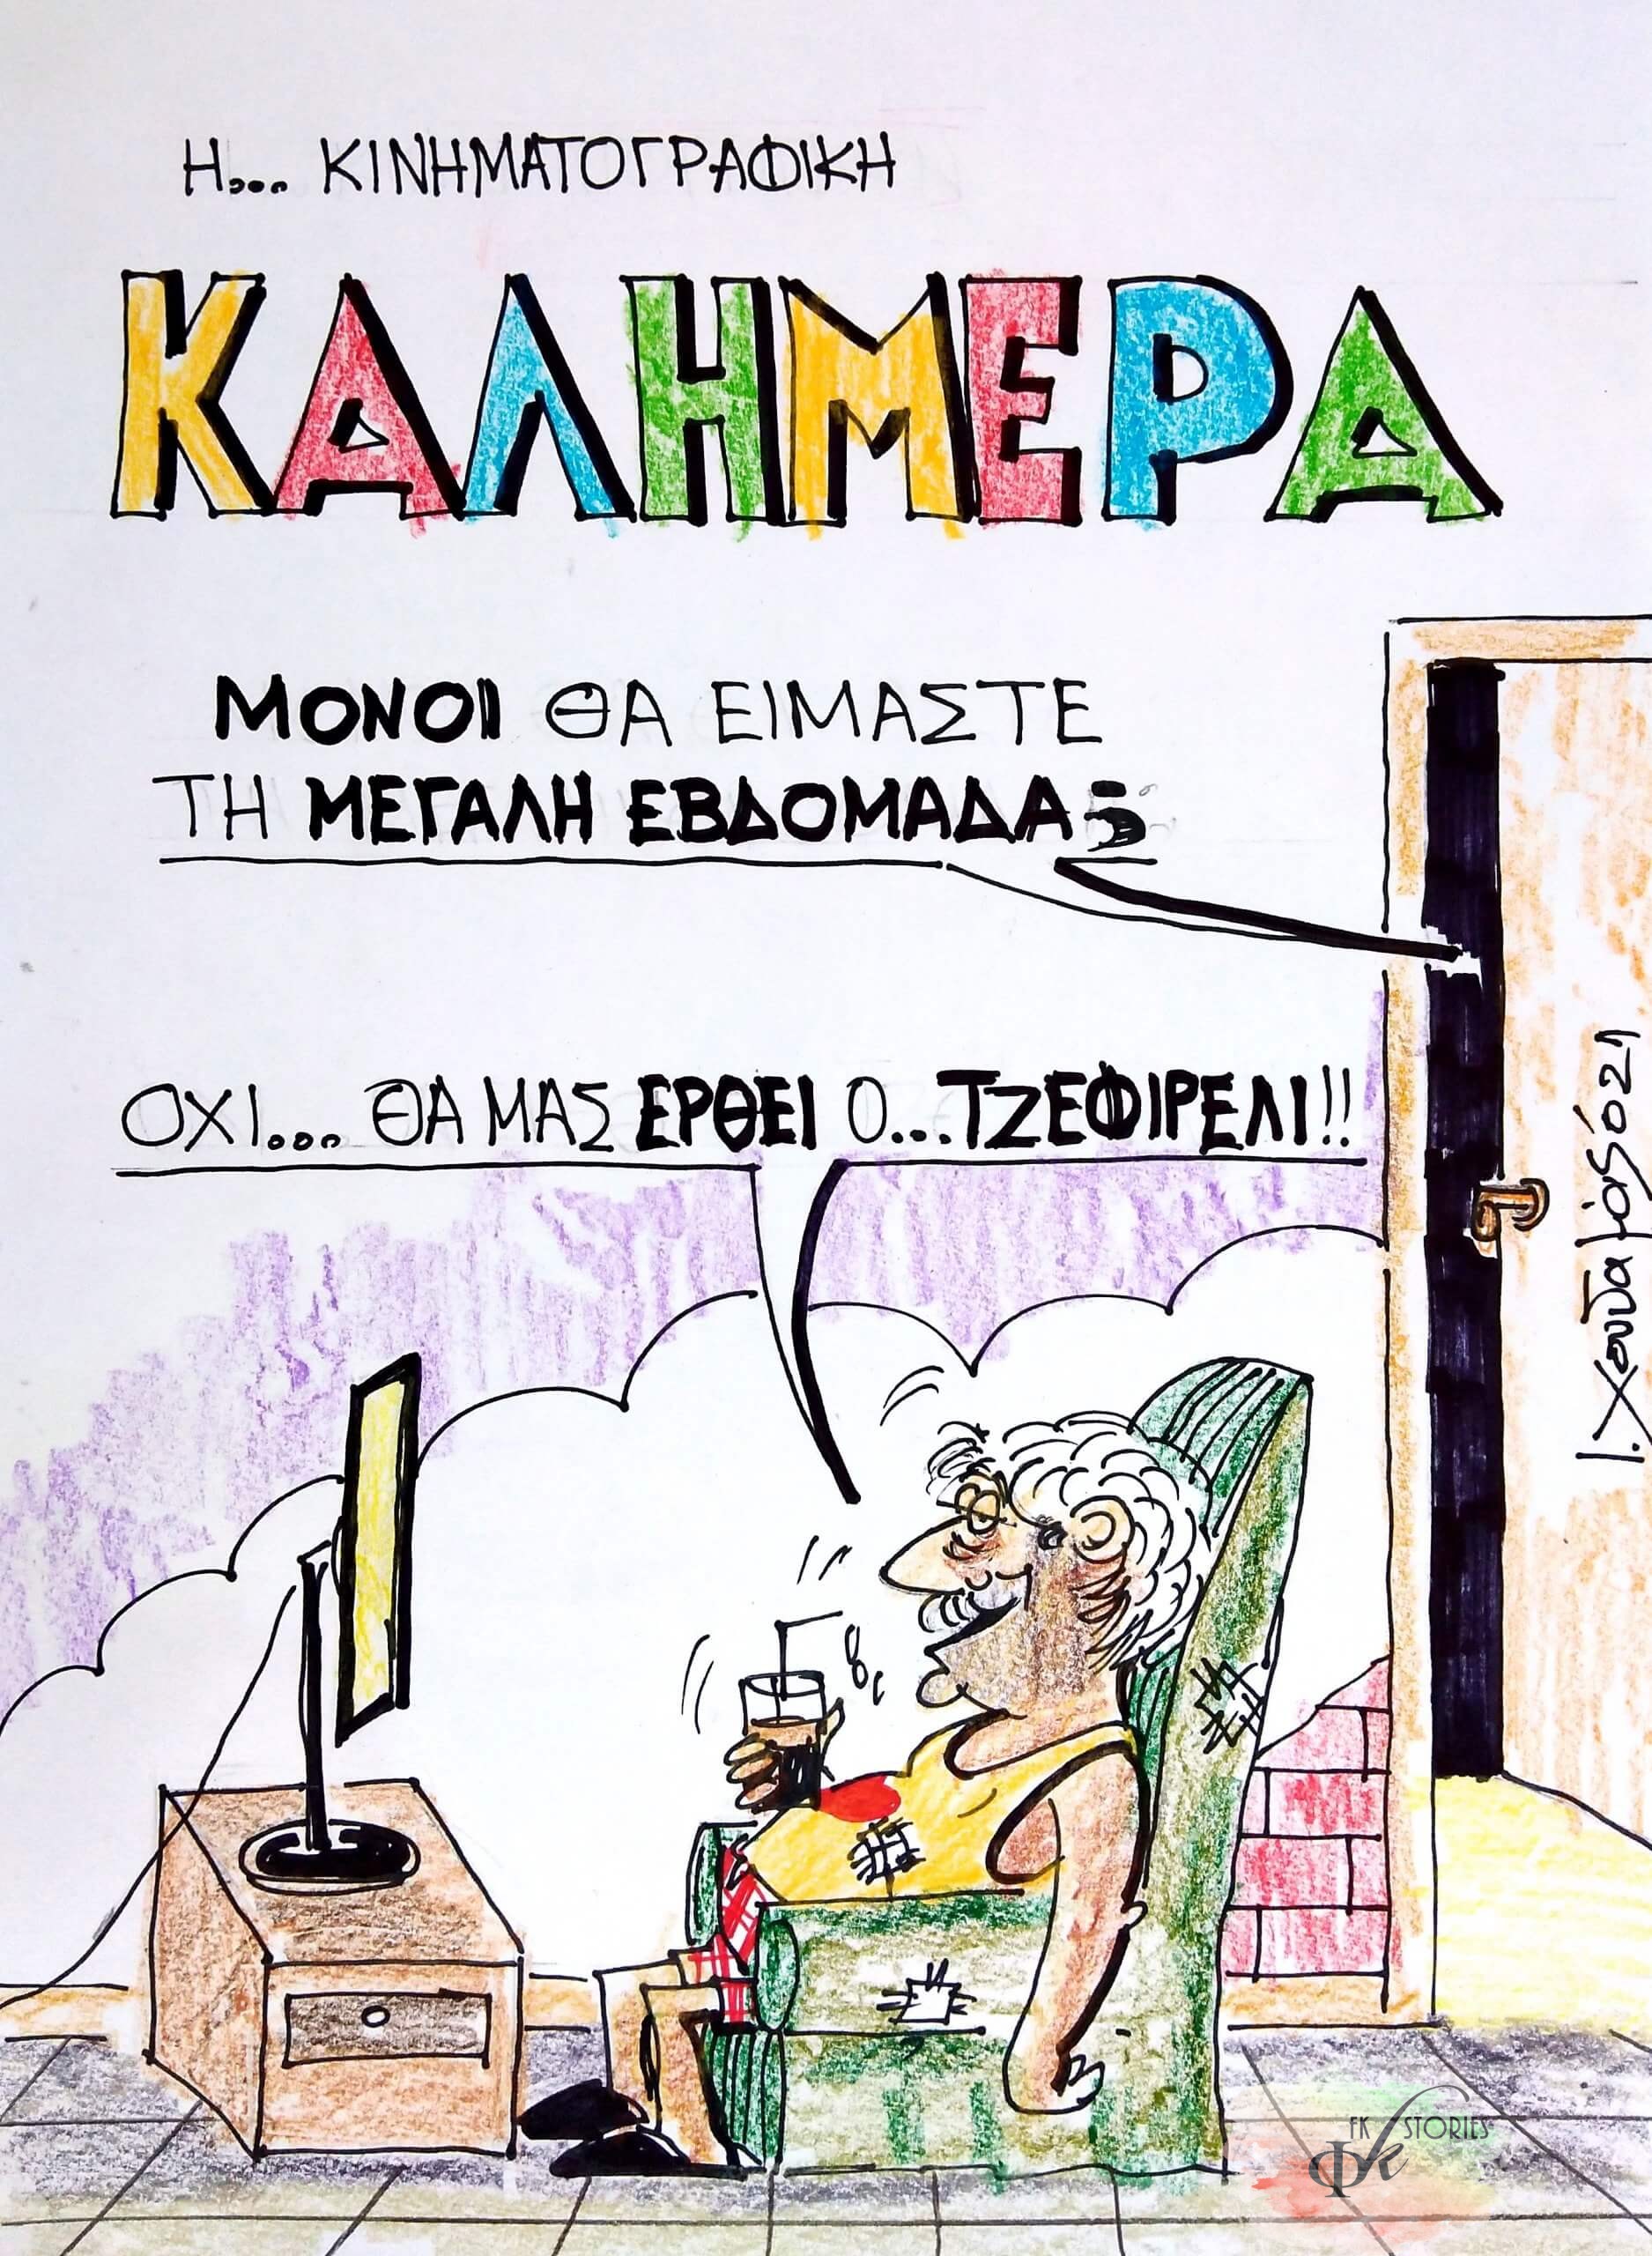 Η... ΚΙΝΗΜΑΤΟΓΡΑΦΙΚΗ
ΚΑΛΗΜΕΡΑ
ΜΟΝΟΙ ΘΑ ΕΙΜΑΣΤΕ
ΤΗ ΜΕΓΑΛΗ ΕΒΔΟΜΑΔΑ;
ΟΧΙ... ΘΑ ΜΑΣ ΕΡΘΕΙ Ο... ΤΖΕΦΙΡΕΛΙ!!
FK STORIES